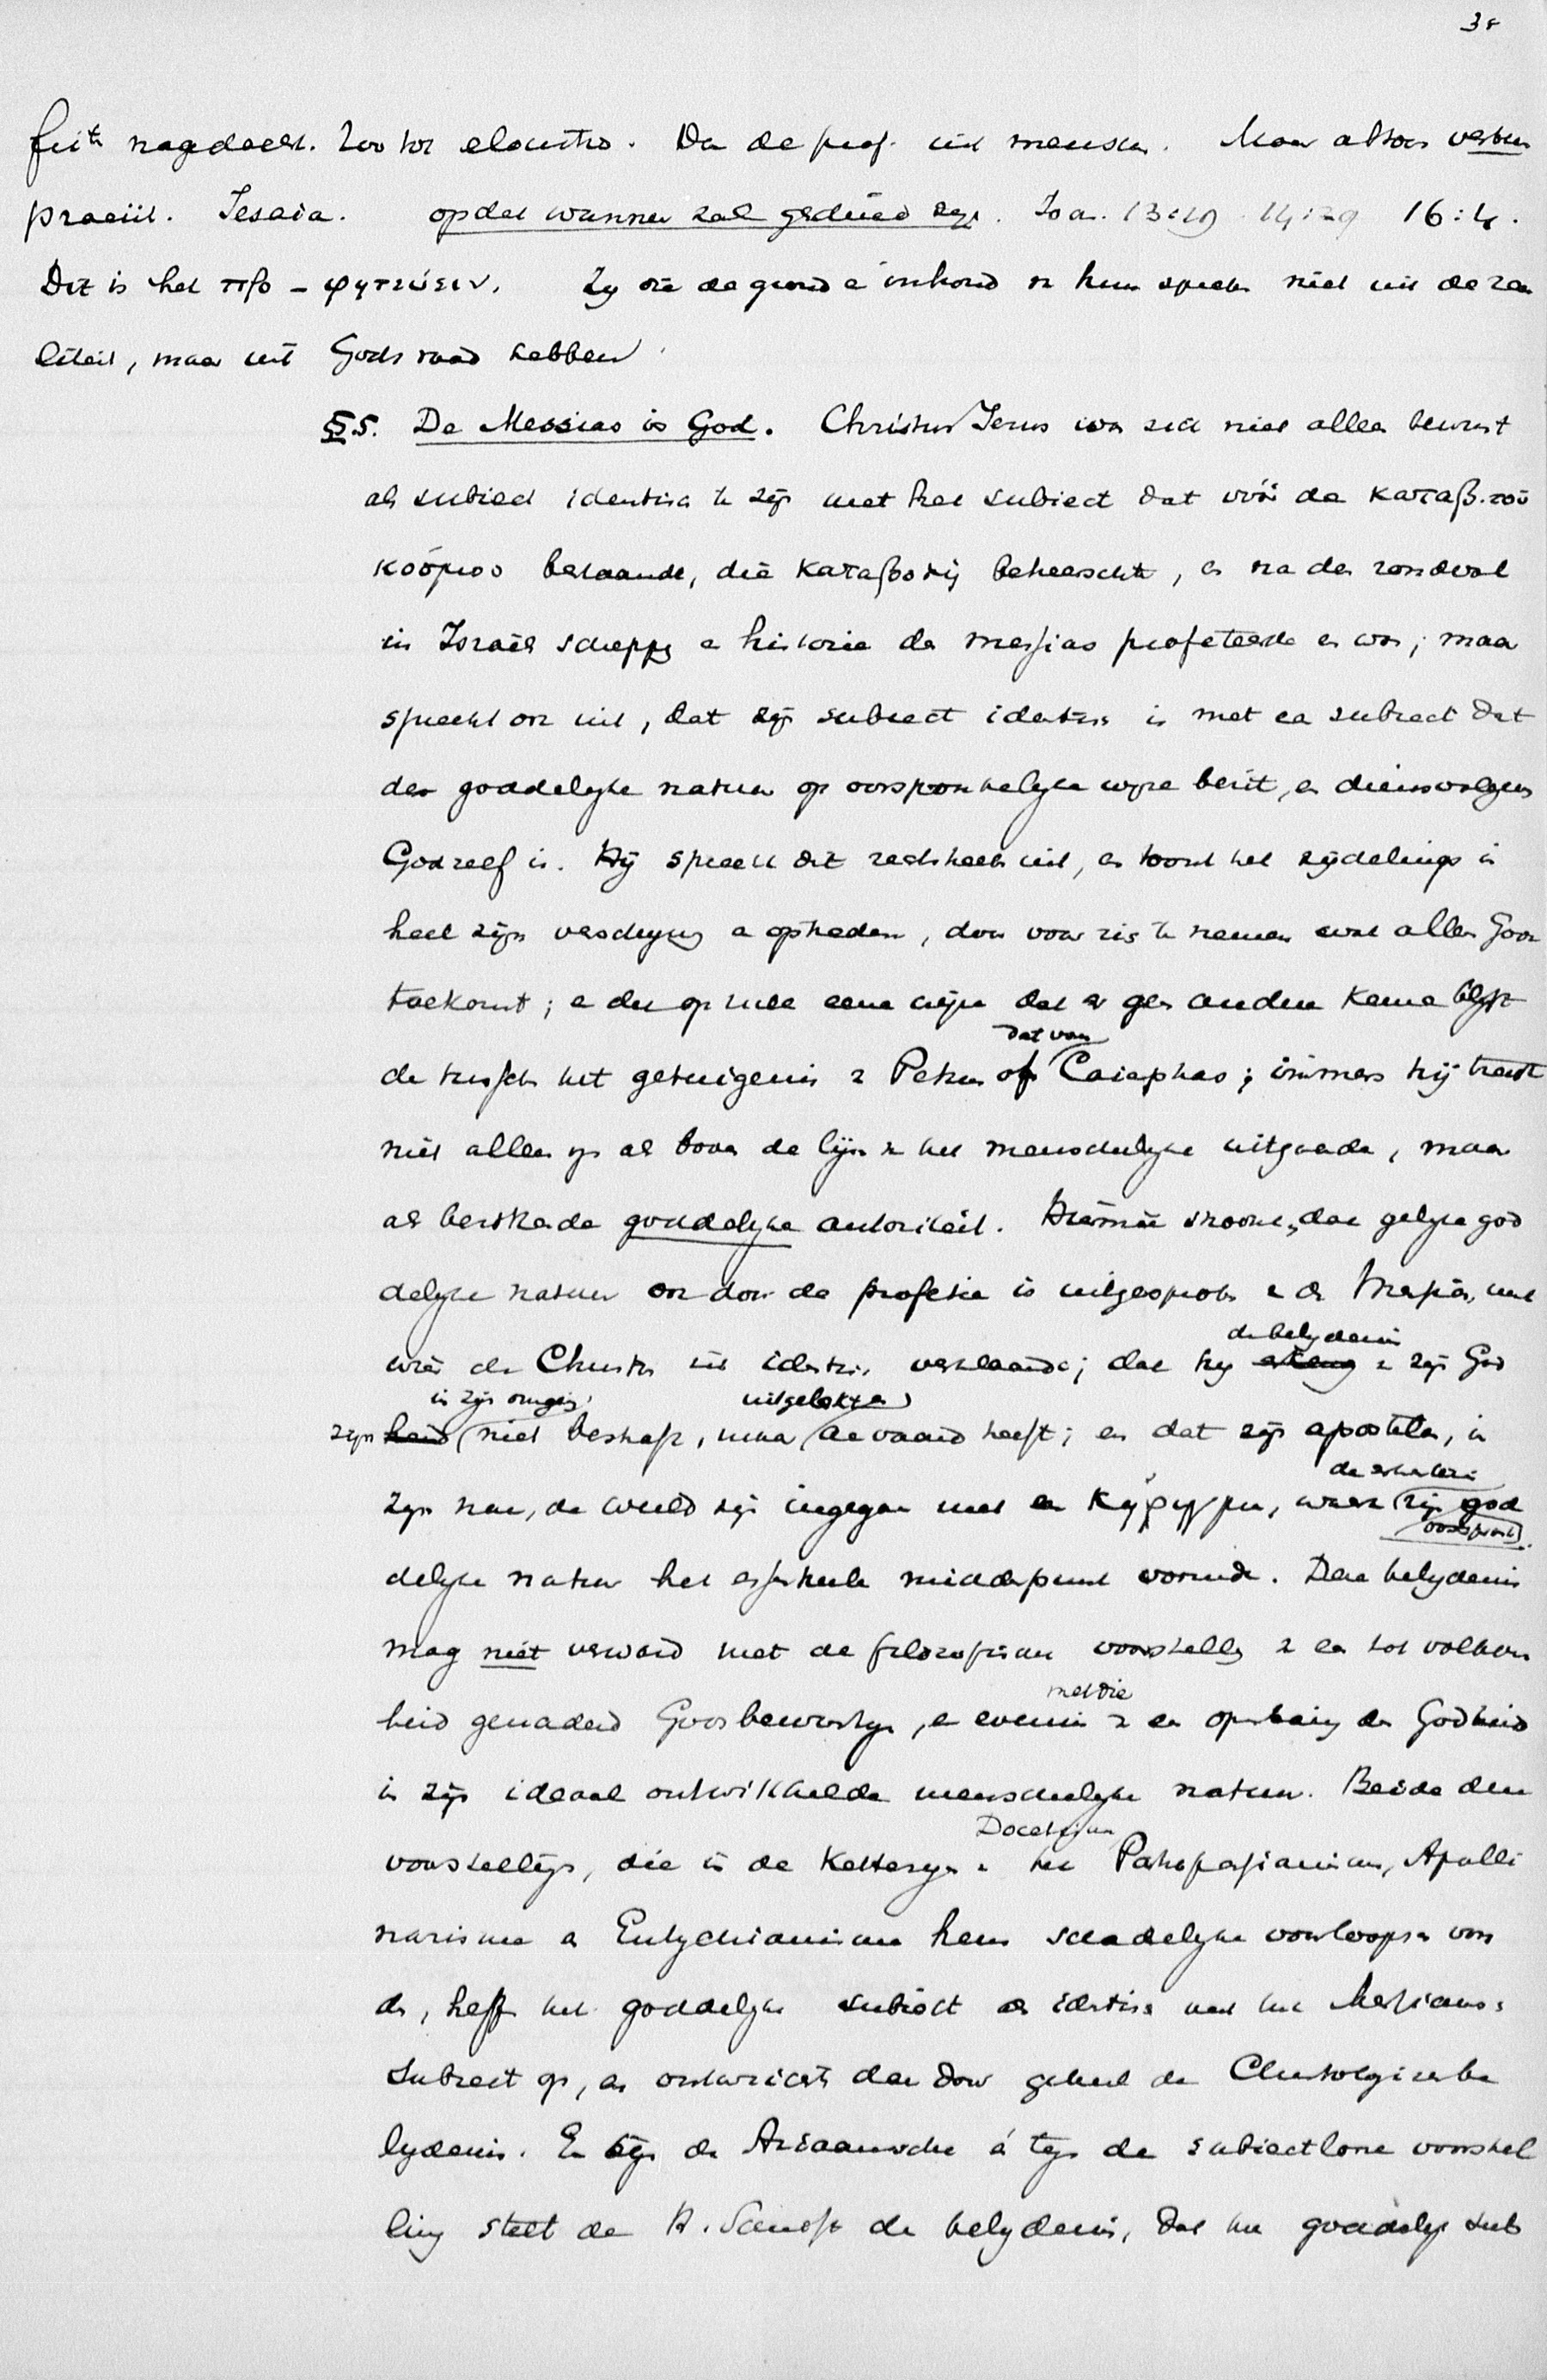 38
feit nagedacht. Zoo tot electrs. Da de prof. uit menschen. Maar altoos verbum
praeiit. Jesaia. opdat wanneer zal geschied zijn. Joa. 13:19 14:29 16:4.
Dit is het προ-φητεύειν. Zy die de grond e inhoud v hun spreken niet uit de rea
liteit, maar uit Gods raad hebben.
§5. De Messias is God. Christus Jezus was zich niet alleen bewust
als subiect identisch te zijn met het subiect dat vóór de καταβ. τοῦ
κόσμου bestaande, die καταβολή beheerschte, en na den zondeval
in Israël schepping e historie de Messias profeteerde en was; maar
spreekt ook uit, dat zijn subiect identisch is met een subiect dat
de goddelyke natuur op oorspronkelyke wyze bezit, en dienvolgens
God zelf is. Hij spreekt dit rechtstreeks uit, en toont het zijdelings in
heel zijn verschyning e optreden, door voor zich te nemen wat alleen God
toekomt; e dit op zulk eene wijze dat er geen andere keuze blyft
dat van
de tusschen het getuigenis v Petrus of Caiaphas; immers hij treedt
niet alleen op als boven de lijn v het menschelyke uitgaande, maar
als bezittende goddelyke autoriteit. Hiermee strookt, dat gelyke god
delyke natuur ook door de profetie is uitgesproken v de Messias, met
de belydenis
wien de Christus zich identisch verklaarde; dat hy v zijn God
in zijn omgeving uitgelokt en
zijn niet bestraft, maar aanvaard heeft; en dat zijn apostelen, in
zijn naam, de wereld zijn ingegaan met een κήρυγμα, waarin zijn god
oorspronk.
delyke natuur het essentieele middelpunt vormde. Deze belydenis
mag niet verward met de filozofische voorstelling v een tot volkomen
met die
heid genaderd Godsbewustzijn, e evenmin v een openbaring der Godheid
in zijn ideaal ontwikkelde menschelyke natuur. Beide deze
Docetisme
voorstellingen, die in de ketteryen v het Patripassianisme, Apolli
narisme e Eutychianisme hun schadelyke voorloopers von
den, heffen het goddelyke subiect als identisch met het Messiaansche
subiect op, en ontwrichten daardoor geheel de Christologische be
lydenis. En tegen de Ariaansche én tegen de subiectlooze voorstel
ling stelt de H. Schrift de belydenis, dat het goddelyk sub